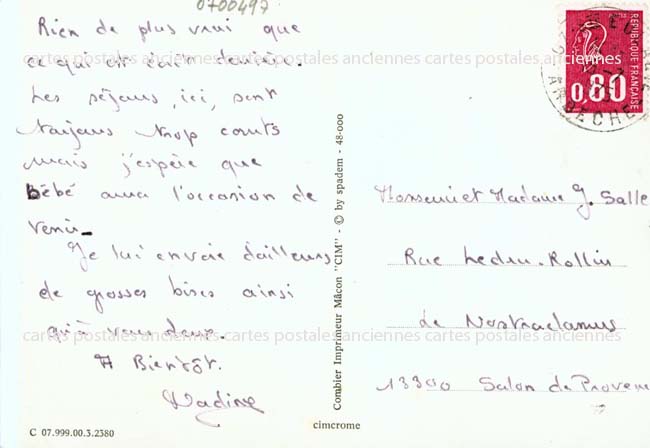 0700497
Rien de plus vrai que
ce qui est écrit derrière.
Les séjours, ici, sont
toujours trop courts
mais j'espère que
Bébé aura l'occasion de
venir_
Je lui envoie d'ailleurs
de grosses bises ainsi
qu'à vous deux.
A Bientôt.
Nadine
C 07.999.00.3.2380
Combier Imprimeur Mâcon "CIM" - © by spadem - 48-000
cimcrome
REPUBLIQUE FRANÇAISE
0,80
ARDECHE
Monsieur et Madame J. Salle
Rue Ledru-Rollin
Le Nostradamus
13300 Salon de Provence
cartes postales anciennes cartes postales anciennes cartes postales anciennes
cartes postales anciennes cartes postales anciennes cartes postales anciennes